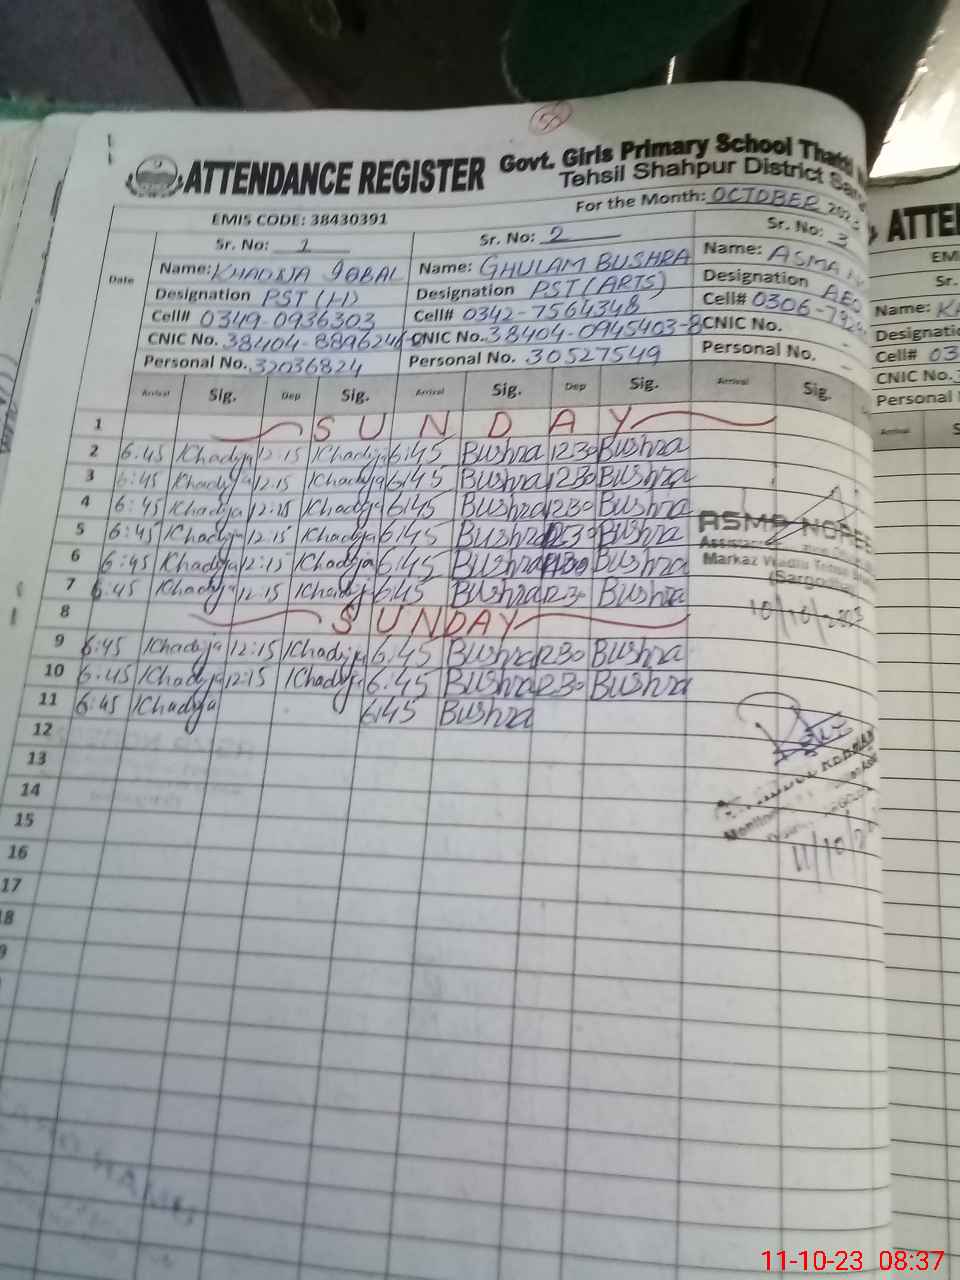 50
ATTENDANCE REGISTER Govt. Girls Primary School
Tehsil Shahpur District
EMIS CODE: 38430391 For the Month: OCTOBER
Sr. No: 1 Sr. No: 2 Sr. No: 3
Date Name: KHADIJA IQBAL Name: GHULAM BUSHRA Name: ASMA
Designation PST (H) Designation PST (ARTS) Designation AEO
Cell# 0349-0936303 Cell# 0342-7564348 Cell# 0306-
CNIC No. CNIC No. 38404-0945403-8 CNIC No. -
Personal No. 32036824 Personal No. 30527549 Personal No. -
Arrival Sig. Dep Sig. Arrival Sig. Dep Sig. Arrival Sig.
1 SUNDAY
2 6:45 Khadija 12:15 Khadija 6:45 Bushra 1230 Bushra
3 6:45 Khadija 12:15 Khadija 6:45 Bushra 1230 Bushra
4 6:45 Khadija 12:15 Khadija 6:45 Bushra 1230 Bushra
5 6:45 Khadija 12:15 Khadija 6:45 Bushra 1230 Bushra
6 6:45 Khadija 12:15 Khadija 6:45 Bushra 1230 Bushra
7 6:45 Khadija 12:15 Khadija 6:45 Bushra 1230 Bushra
8 SUNDAY
9 6:45 Khadija 12:15 Khadija 6:45 Bushra 1230 Bushra
10 6:45 Khadija 12:15 Khadija 6:45 Bushra 1230 Bushra
11 6:45 Khadija 6:45 Bushra
12
13
14
15
16
17
ASMA
Markaz
(Sargodha)
10/10/2023
11/10/2
ATTEN
EM
Sr.
Name:
Cell# 03
CNIC No.
Personal
Arrival
11-10-23 08:37